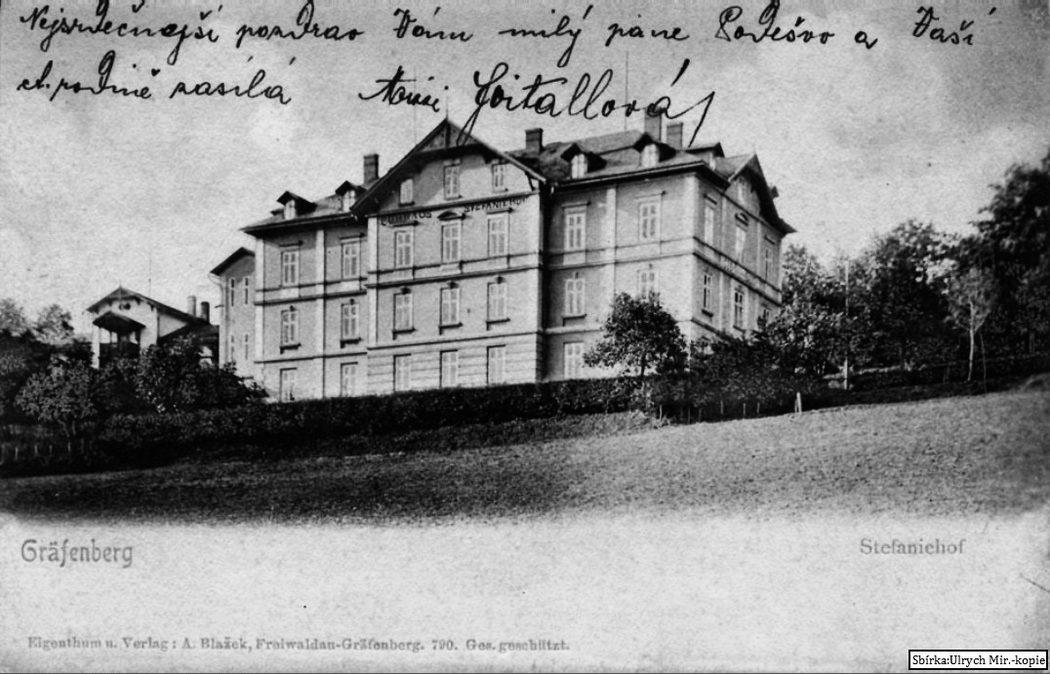 Nejsrdečnější pozdrav Vám milý pane Podešvo a Vaší
ct. rodině zasílá Voitallová
KURHAUS STEFANIEHOF
Gräfenberg
Stefaniehof
Eigenthum u. Verlag: A. Blažek, Freiwaldau-Gräfenberg. 790. Ges. geschützt.
Sbírka:Ulrych Mir.-kopie